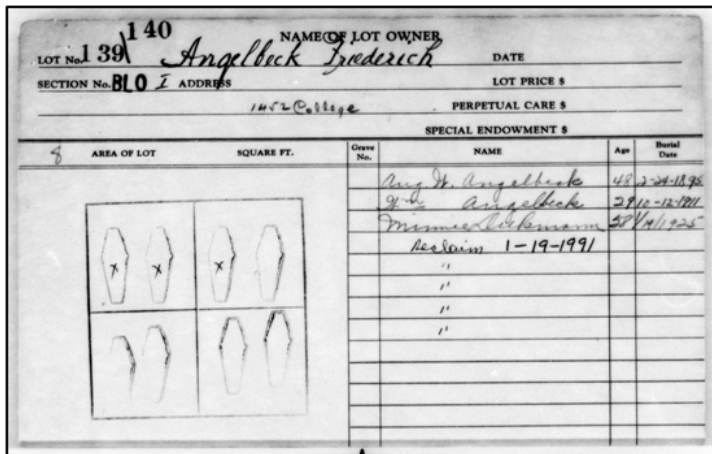 140
NAME OF LOT OWNER
LOT No. 139 Angelbeck Friederich DATE
SECTION No. BLO I ADDRESS LOT PRICE $
1452 College PERPETUAL CARE $
SPECIAL ENDOWMENT $
8 AREA OF LOT SQUARE FT. Grave No. NAME Age Burial Date
Aug. W. Angelbeck 48 2-24-1895
Wm Angelbeck 29 10-12-1911
Minnie Dickmann 58 1/14/1925
Reclaim 1-19-1991
"
"
"
"
x x x